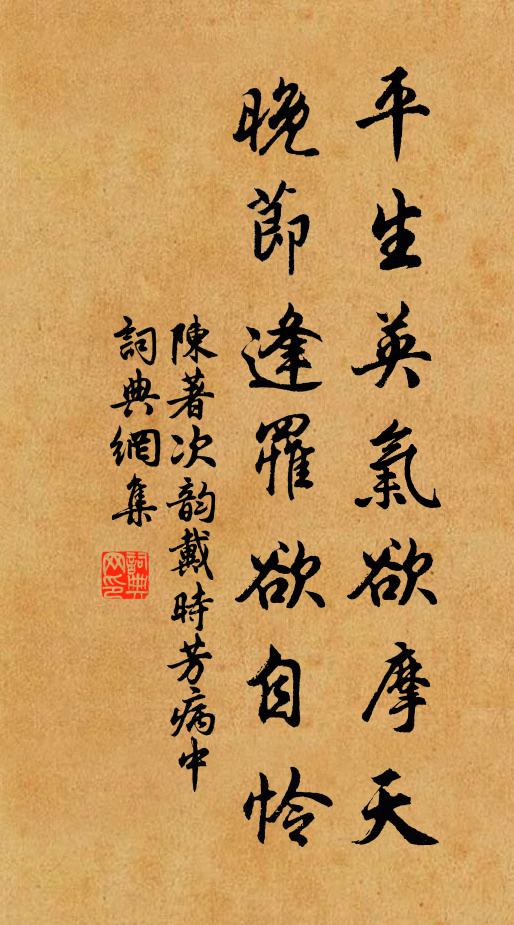 平生英氣欲摩天
晚節逢罹欲自怜
陳著次韵戴時芳病中
詞典網集
詞典網印